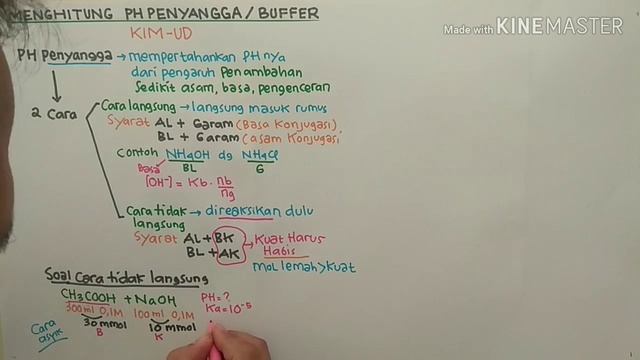 MENGHITUNG PH PENYANGGA / BUFFER
Made with KINEMASTER
KIM-UD
PH Penyangga → mempertahankan PH nya
dari pengaruh Penambahan
Sedikit asam, basa, pengenceran
2 Cara
Cara langsung → langsung masuk rumus
Syarat AL + Garam (Basa Konjugasi)
BL + Garam (asam Konjugasi)
Contoh NH4OH dg NH4Cl
Basa BL G
[OH-] = Kb · nb/ng
Cara tidak langsung → direaksikan dulu
Syarat AL + BK → Kuat Harus
BL + AK Habis
mol lemah > kuat
Soal Cara tidak langsung
CH3COOH + NaOH PH = ?
300 ml 0,1M 100 ml 0,1M Ka = 10-5
30 mmol 10 mmol
B K
Cara asyik